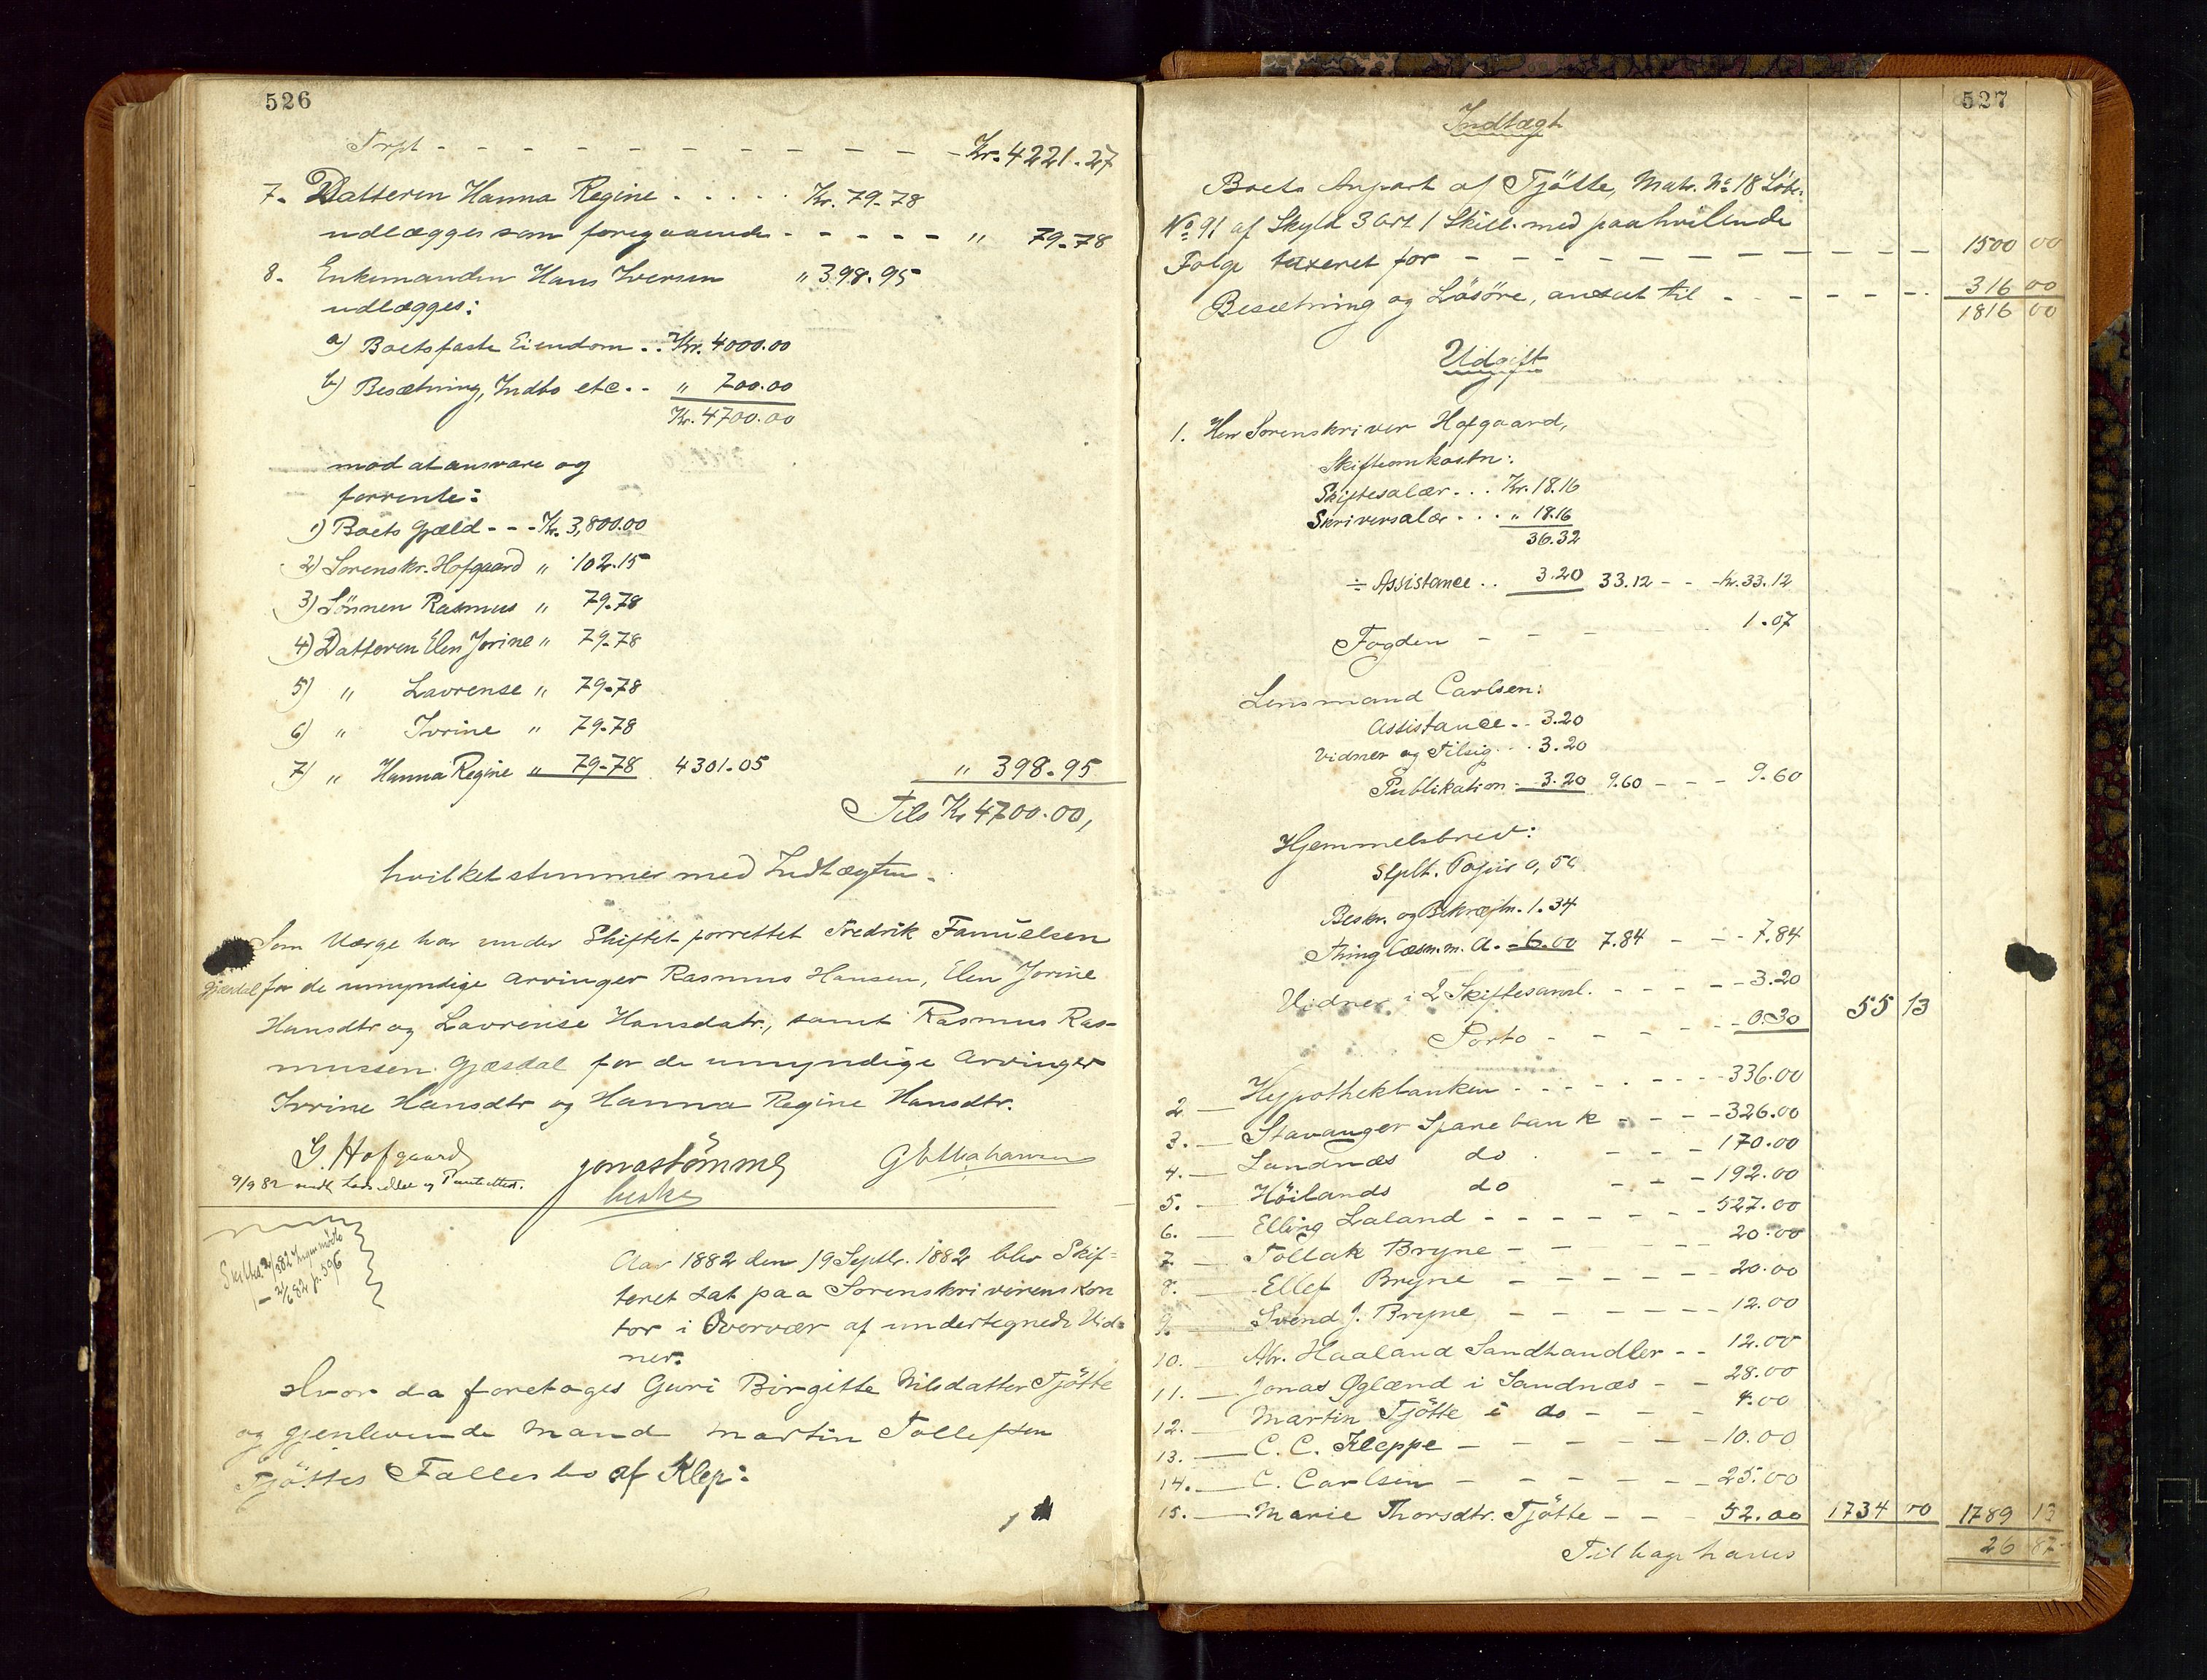 526
Trspt - - - - - - - - - - - Kr. 4221.27
7. Datteren Hanna Regine . . . . . Kr. 79.78
udlægges som foregaaende - - - - - " 79.78
8. Enkemanden Hans Iversen " 398.95
udlægges:
a) Boets faste Eiendom . . Kr. 4000.00
b) Besætning, Indbo etc. - " 700.00
Kr. 4700.00
mod at ansvare og
forrente:
1) Boets Gjæld - - - Kr. 3,800.00
2) Sorenskr. Hofgaard " 102.15
3) Sönnen Rasmus " 79.78
4) Datteren Elen Jorine " 79.78
5) " Lavrense " 79.78
6) " Ivrine " 79.78
7) " Hanna Regine " 79.78 4301.05 " 398.95
Tils Kr 4700.00,
hvilket stemmer med Indtægten.
Som Værge har under Skiftet forrettet Fredrik Famuelsen
Gjæsdal for de umyndige Arvinger Rasmus Hansen, Elen Jorine
Hansdtr og Lavrense Hansdatr., samt Rasmus Ras-
mussen Gjæsdal for de umyndige Arvinger
Ivrine Hansdtr og Hanna Regine Hansdtr.
G. Hofgaard Jonas Tömmer
9/9 82
Aar 1882 den 19 Septbr. 1882 blev Skif-
teret sat paa Sorenskriverens Kon
tor i Overvær af undertegnede Vid-
ner.
Hvor da foretoges Guri Birgitte Nilsdatter Tjötte
og gjenlevende Mand Martin Tollefsen
Tjöttes Fællesbo af Klep:
527
Indtægt
Boets Anpart af Tjötte, Matr. No 18 Löbe
No 91 af Skyld 3 Ort 1 Skill. med paahvilende
Folge taxeret for - - - - - - - - - - 1500 00
Besætning og Lösöre, ansat til - - - - - - 316 00
1816 00
Udgift
1. Herr Sorenskriver Hofgaard,
Skifteomkostn:
Skiftesalær . . . Kr. 18.16
Skriversalær . . . " 18.16
36.32
÷ Assistance . . 3.20 33.12 - - Kr. 33.12
Fogden - - - - 1.07
Lensmand Carlsen:
Assistance . . 3.20
Vidner og Tilsig . . . 3.20
Publikation - 3.20 9.60 - - - 9.60
Hjemmelsbrev:
Stplt. Papir 0,50
Beskr. og Bekræftn. 1.34
Thinglæsn. m. A. - 6.00 7.84 - - - 7.84
Vidner i 2 Skiftesaml. - - - - - 3.20
Porto - - - - - 0.30 55 13
2 — Hypothekbanken - - - - - - - 336.00
3. — Stavanger Sparebank - - - - 326.00
4. — Sandnæs do - - - 170.00
5. — Höilands do - - - 192.00
6. — Elling Laland - - - - - - - 527.00
7 — Tollak Bryne - - - - 20.00
8. — Ellef Bryne - - - - - - 20.00
9. — Svend J. Bryne - - - - - - 12.00
10. — Abr. Haaland Sandhandler - - 12.00
11. — Jonas Øglænd i Sandnæs - - 28.00
12. — Martin Tjötte i do - - - - 4.00
13. — C. C. Kleppe - - - - - - 10.00
14. — C. Carlsen - - - - - - 25.00
15. — Marie Thorsdtr. Tjötte - - - 52.00 1734 00 1789 13
Tilbage haves 26 87